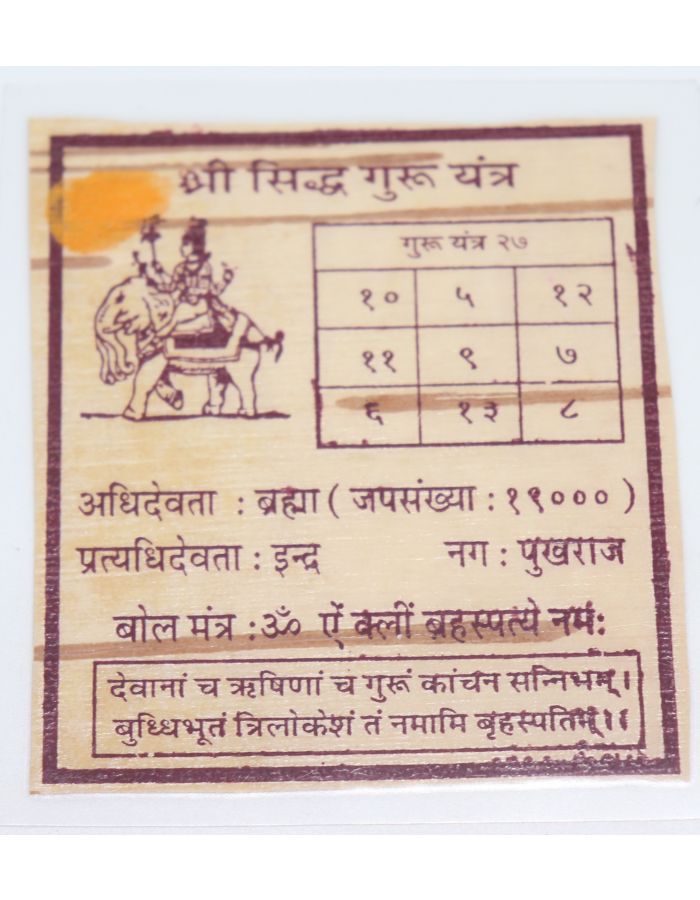 श्री सिद्ध गुरू यंत्र
गुरू यंत्र २७
१० ५ १२
११ ९ ७
६ १३ ८
अधिदेवता : ब्रह्मा ( जपसंख्या : १९००० )
प्रत्यधिदेवता : इन्द्र नग : पुखराज
बोल मंत्र : ॐ ऐं क्लीं ब्रहस्पत्ये नमः
देवानां च ऋषिणां च गुरूं कांचन सन्निभम् ।
बुध्धिभूतं त्रिलोकेशं तं नमामि बृहस्पतिम् ।।